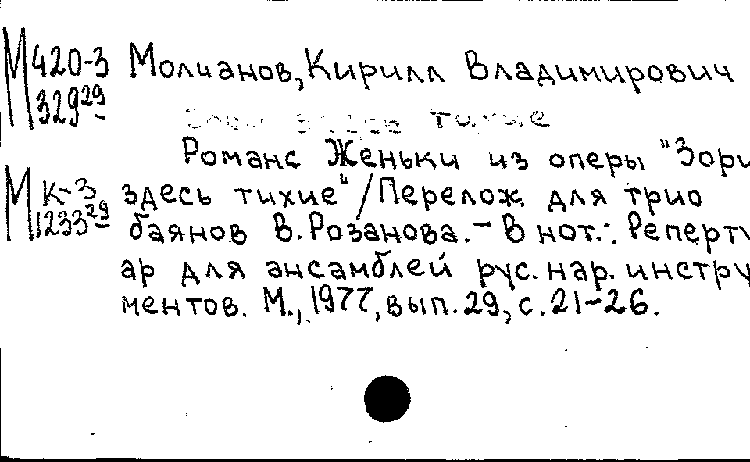 М 420-3 Молчанов, Кирилл Владимирович
329 29
Зори здесь тихие
Романс Женьки из оперы "Зори
М К-3 здесь тихие" / Перелож. для трио
1233 29 баянов В. Розанова. – В нот.: Реперту
ар для ансамблей рус. нар. инстру
ментов. М., 1977, вып. 29, с. 21-26.